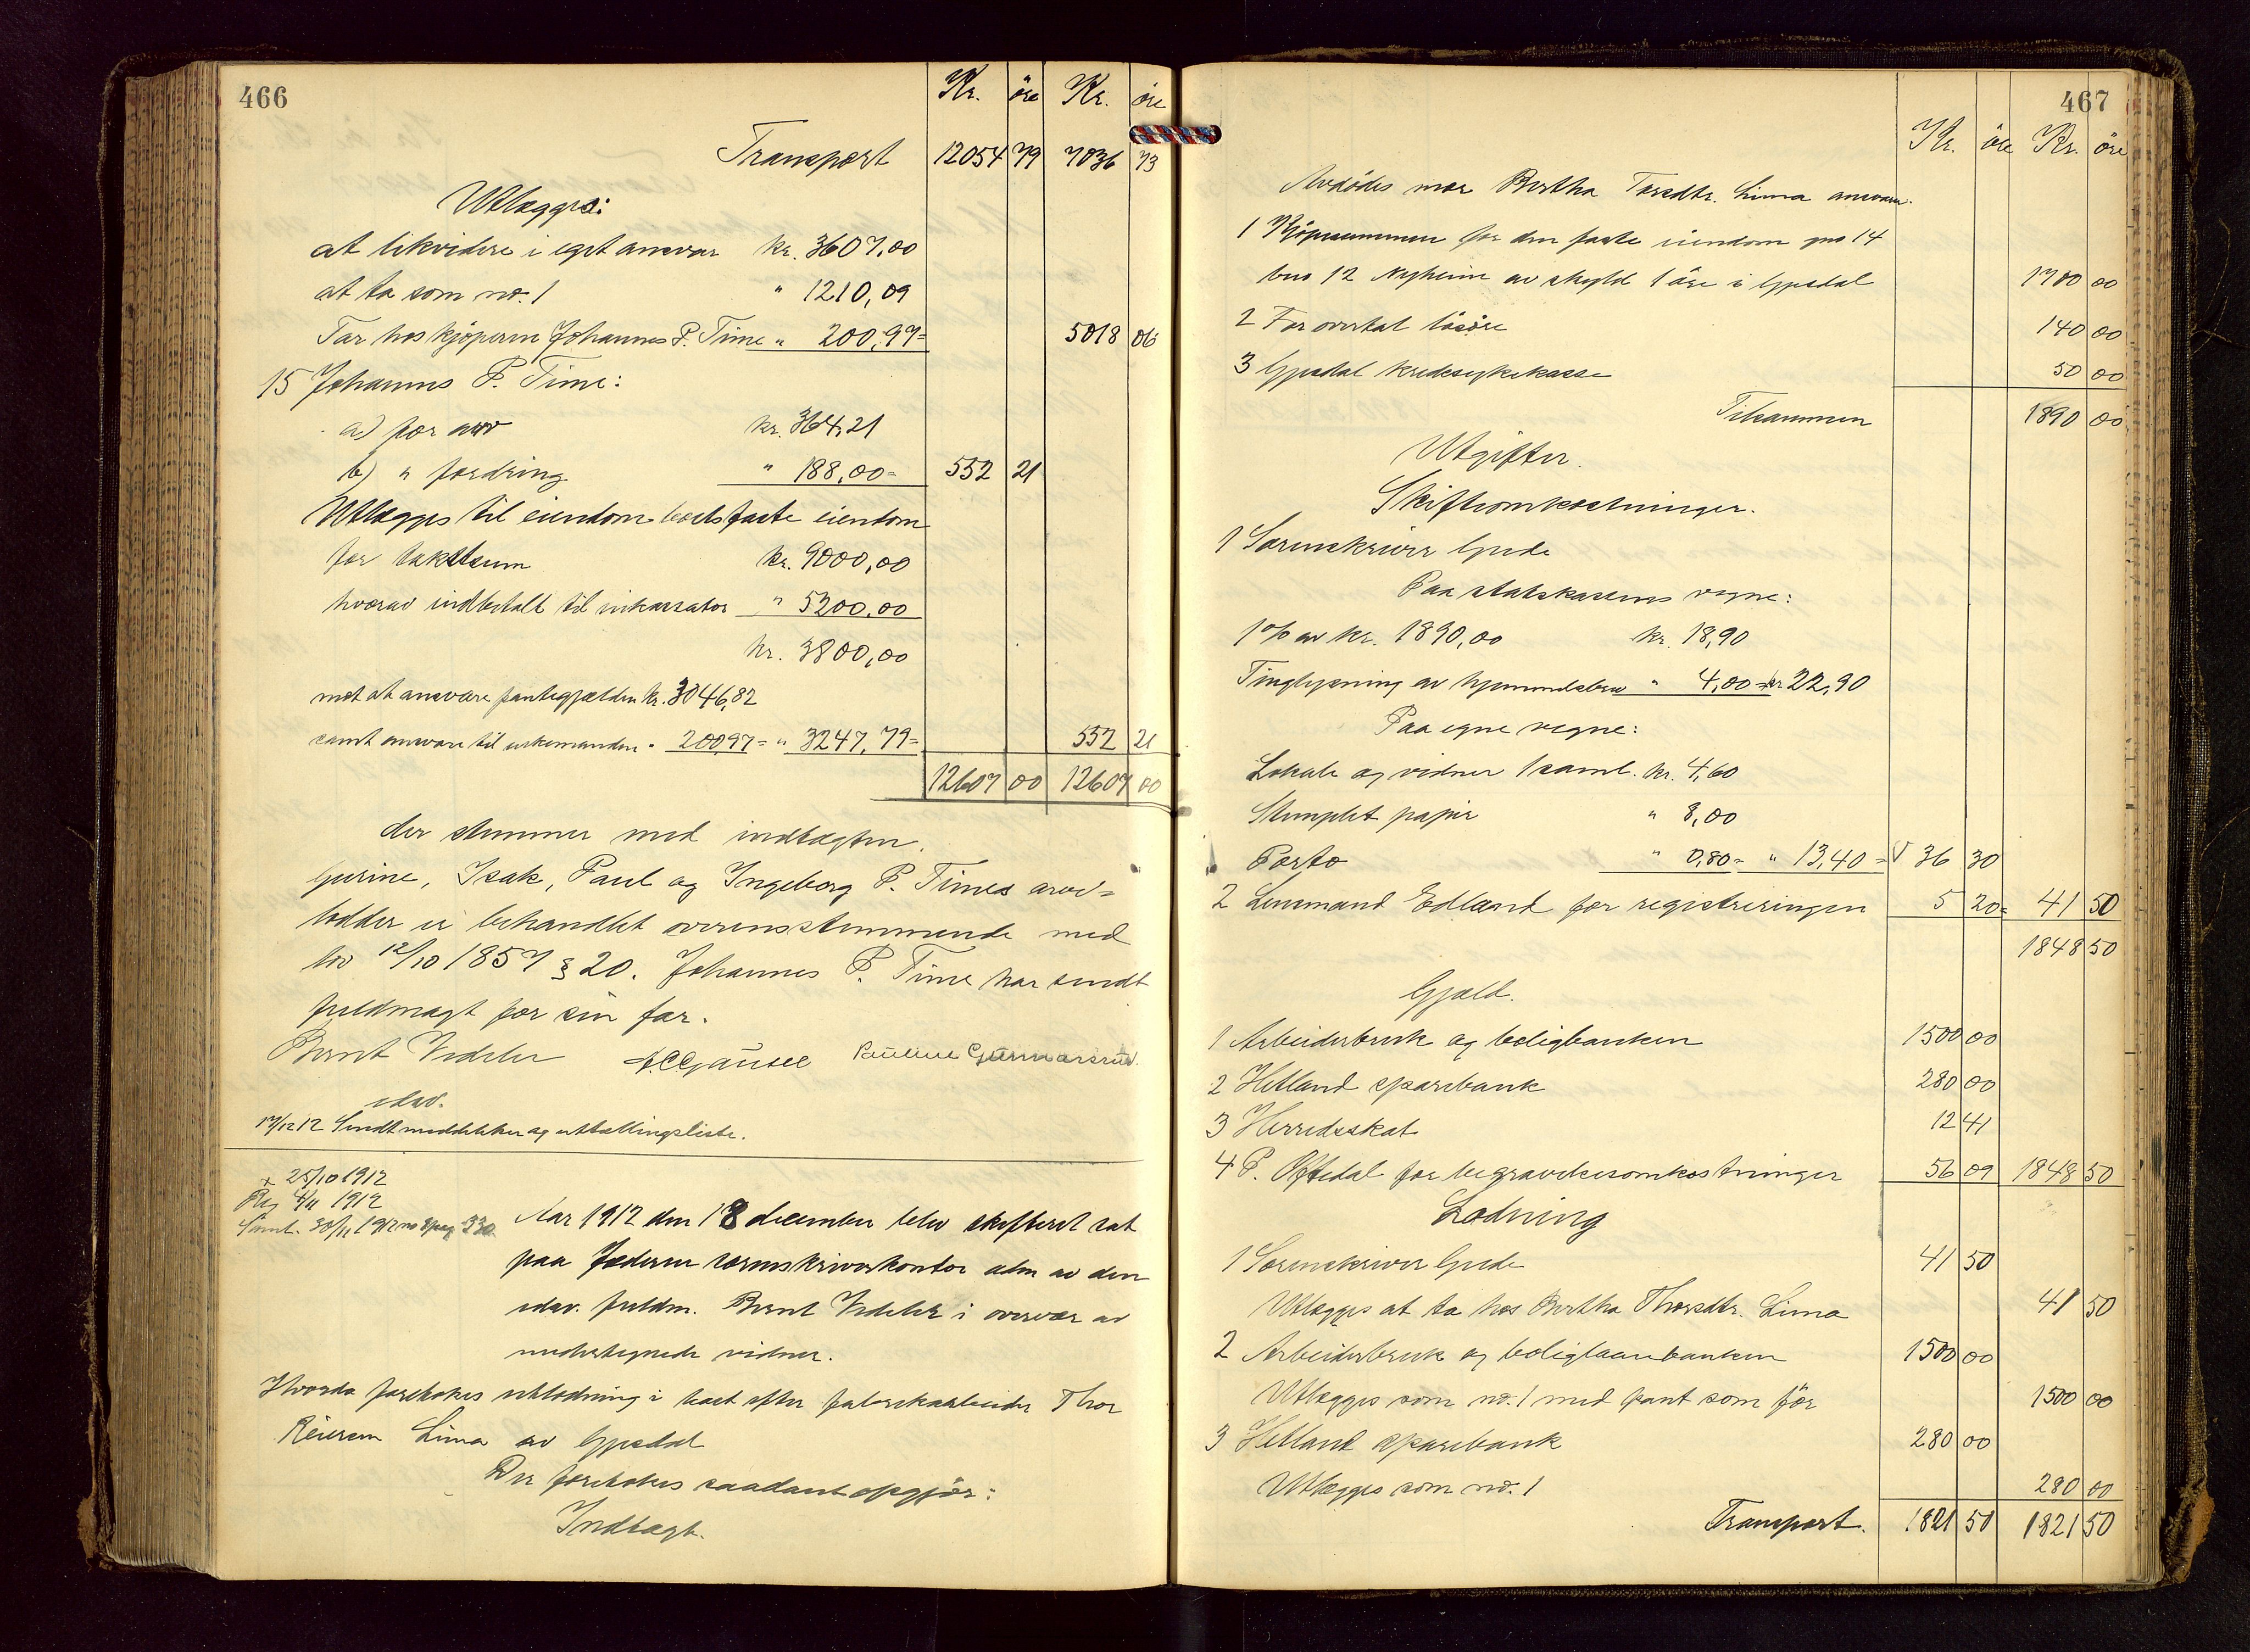 466
Kr. öre Kr. öre
Transport 12054 79 7036 73
Utlægges:
at likvidere i eget ansvar kr. 3607,00
at ta som nr. 1 " 1210,09
Tar hos kjöperen Johannes P. Time " 200,97= 5018 06
15 Johannes P. Time:
a) for arv kr. 364,21
b) " fordring " 188,00= 552 21
Utlægges til eiendom boets faste eiendom
for takstsum kr. 9000,00
hvorav indbetalt til inkassator " 5200,00
kr. 3800,00
mot at ansvare pantegjælden kr. 3046,82
samt ansvare til enkemanden " 200,97= " 3247,79= 552 21
12607 00 12607 00
der stemmer med indtægten.
Gurine, Isak, Paul og Ingeborg P. Times arve=
lodder er behandlet overensstemmende med
lov 12/10 1857 § 20. Johannes P. Time har sendt
fuldmagt for sin far.
Bernt Vedeler A.C. Gausel Pauline Gunnarsrud.
edsv.
17/12 12 Sendt meddelelser og uttællingsliste.
+ 25/10 1912
Reg 4/11 1912
Saml. 30/11 1912 no 8 pag 330.
Aar 1912 den 18 december blev skifteret sat
paa Jæderen sorenskriverkontor adm av den
edsv. fuldm. Bernt Vedeler i overvær av
undertegnede vidner.
Hvorda foretokes utlodning i boet efter fabrikarbeider Thor
Reiersen Lima av Gjesdal
Der foretokes saadant opgjör:
Indtægt.
467
Kr. öre Kr. öre
Avdödes mor Bertha Torsdtr. Lima ansvarer.
1 Kjöpesummen for den faste eiendom gno 14
bno 12 Nyheim av skyld 1 öre i Gjesdal 1700 00
2 For overtat lösöre 140 00
3 Gjesdal kredssykekasse 50 00
Tilsammen 1890 00
Utgifter.
Skifteomkostninger.
1 Sorenskriver Gjede
Paa statskassens vegne:
1 % av kr. 1890,00 kr. 18,90
Tinglysning av hjemmelsbrev " 4,00= kr 22,90
Paa egne vegne:
Lokale og vidner 1 saml. kr. 4,60
Stemplet papir " 8,00
Porto " 0,80= " 13,40= 36 30
2 Lensmand Edland for registreringen 5 20= 41 50
1848 50
Gjæld.
1 Arbeiderbruk og boligbanken 1500 00
2 Hetland sparebank 280 00
3 Herredsskat 12 41
4 P. Oftedal for begravelsesomkostninger 56 09 1848 50
Lodning
1 Sorenskriver Gjede 41 50
Utlægges at ta hos Bertha Thorsdtr. Lima 41 50
2 Arbeiderbruk og boliglaanebanken 1500 00
Utlægges som nr. 1 med pant som för 1500 00
3 Hetland sparebank 280 00
Utlægges som nr. 1 280 00
Transport. 1821 50 1821 50